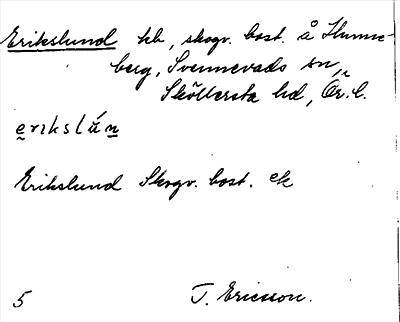 Erikslund hb, skogv. bost. å Hume-
berg, Svennevads sn,
Sköllersta hd, Ör. l.
erikslún
Erikslund Skogv. bost. ek
5 T. Ericsson.